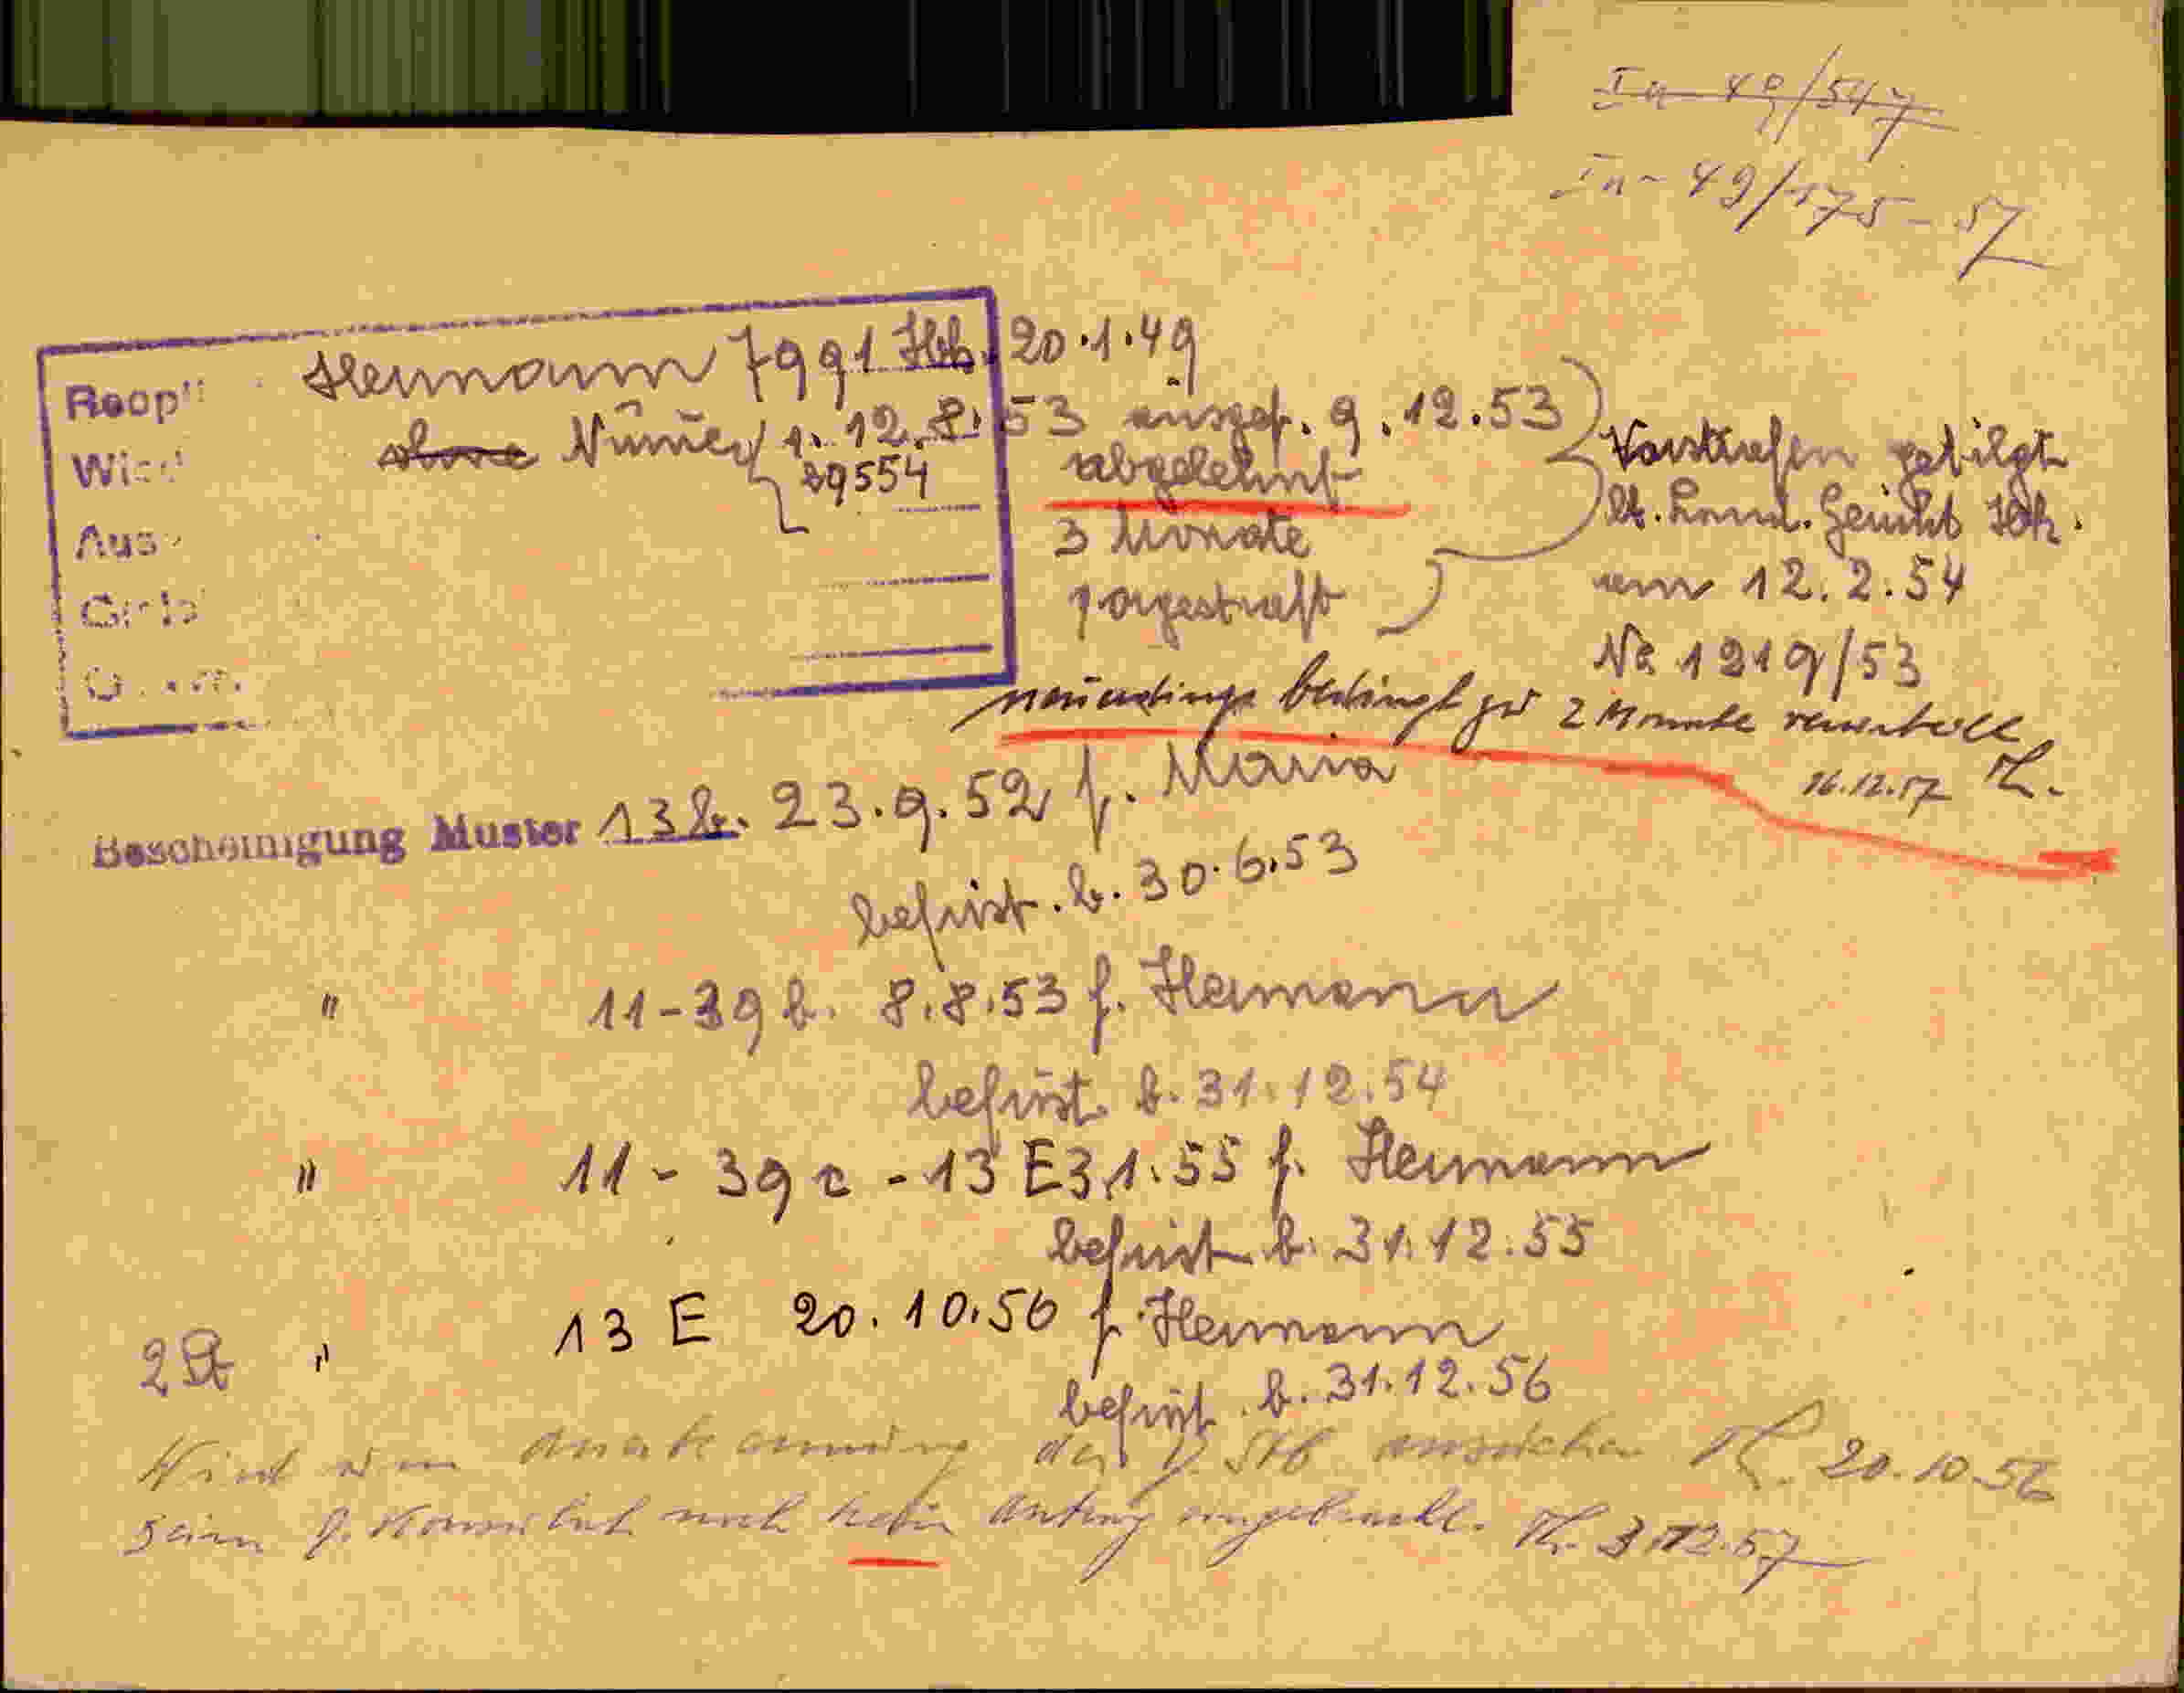 Ia - 49/547
Ia - 49/175 - 57
Hermann 7991 Hbk. 20.1.49
ohne Numer 1. 12.8.53 ausgef. 9.12.53
39554
abgelehnt
3 Monate
vorgestraft
Vorstrafen getilgt
lt. Land. Gericht Hbk.
am 12.2.54
Nc 1219/53
neuerdings bedingt zu 2 Monate verurteilt
16.12.57
Bescheinigung Muster 13 b. 23.9.52 f. Maria
befrist. b. 30.6.53
" 11-39 b. 8.8.53 f. Hermann
befrist. b. 31.12.54
" 11 - 39 c - 13 E 3.1.55 f. Hermann
befrist b. 31.12.55
2 St " 13 E 20.10.56 f. Hermann
befrist. b. 31.12.56
Wird um Anerkennung der ansuchen 20.10.56
noch kein Antrag eingebracht. 3.12.57